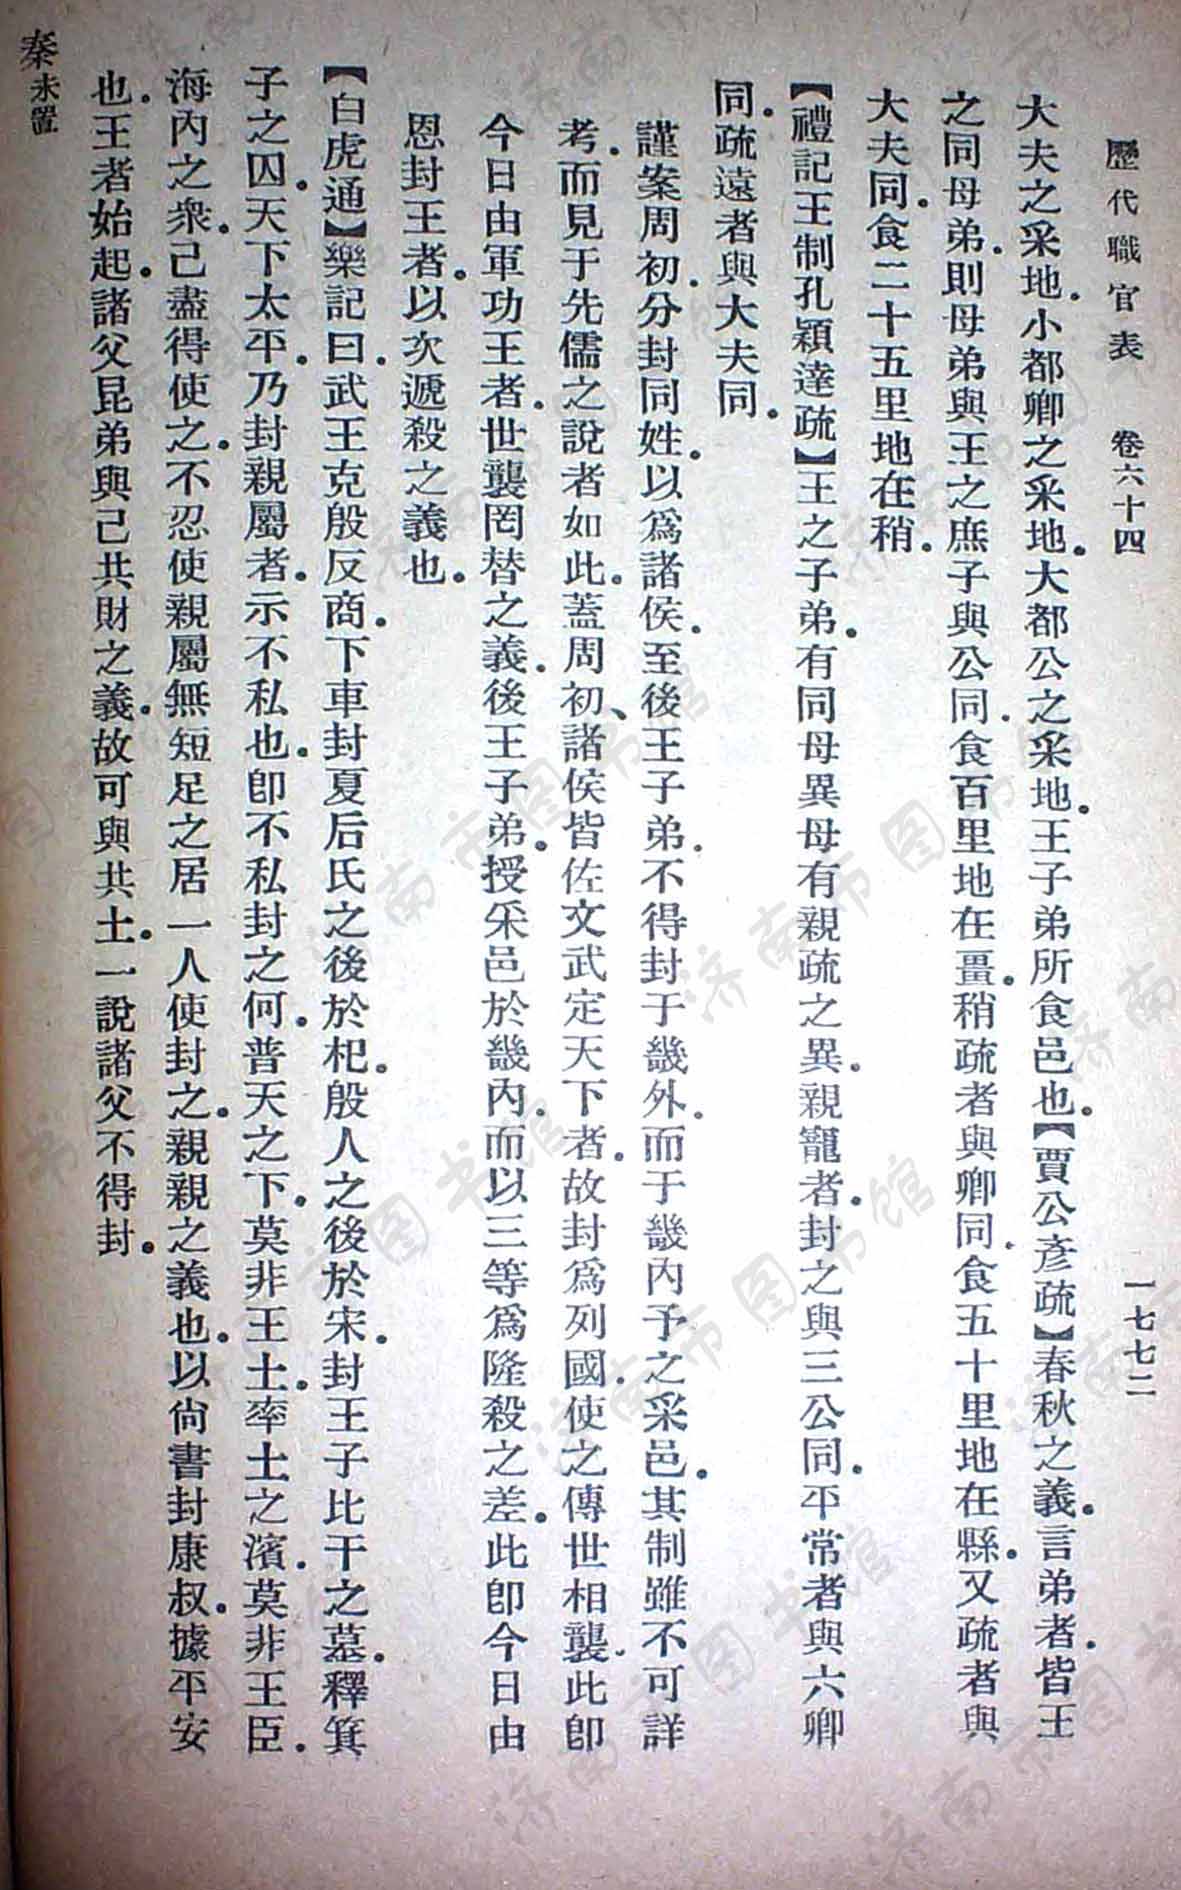 歷代職官表　卷六十四　一七七二
大夫之采地。小都卿之采地。大都公之采地。王子弟所食邑也。【賈公彥疏】春秋之義。言弟者。皆王
之同母弟。則母弟與王之庶子與公同。食百里地在畺。稍疏者與卿同。食五十里地在縣。又疏者與
大夫同。食二十五里地在稍。
【禮記王制孔穎達疏】王之子弟。有同母異母有親疏之異。親寵者。封之與三公同。平常者與六卿
同。疏遠者與大夫同。
謹案周初。分封同姓。以爲諸侯。至後王子弟。不得封于畿外。而于畿內予之采邑。其制雖不可詳
考。而見于先儒之說者如此。蓋周初、諸侯皆佐文武定天下者。故封爲列國。使之傳世相襲。此卽
今日由軍功王者。世襲罔替之義。後王子弟。授采邑於畿內。而以三等爲隆殺之差。此卽今日由
恩封王者。以次遞殺之義也。
【白虎通】樂記曰。武王克殷反商。下車封夏后氏之後於杞。殷人之後於宋。封王子比干之墓。釋箕
子之囚。天下太平。乃封親屬者。示不私也。卽不私封之何。普天之下。莫非王土。率土之濱。莫非王臣。
海內之衆。己盡得使之。不忍使親屬無短足之居一人使封之。親親之義也。以尙書封康叔。據平安
也。王者始起。諸父昆弟與己共財之義。故可與共土。一說諸父不得封。
秦未置